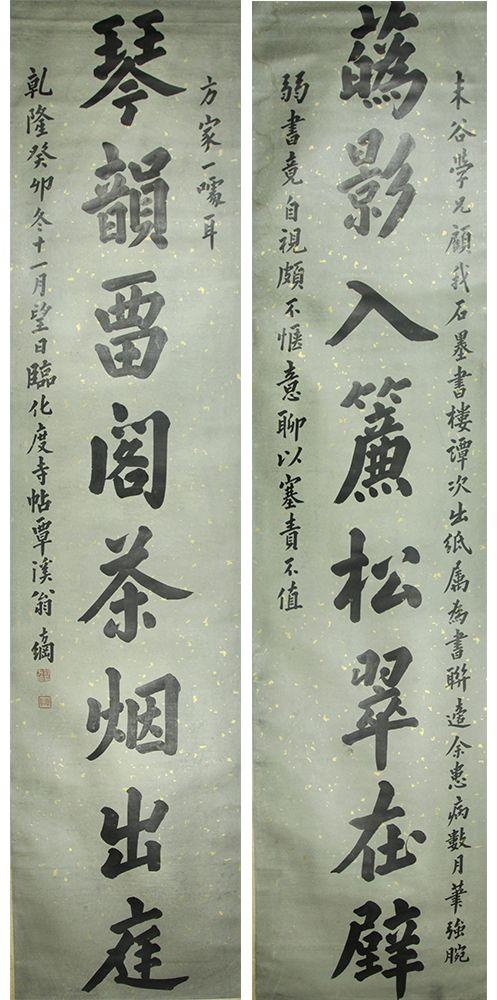 未谷學兄顧我石墨書樓譚次出紙属為書聯適余患病數月筆強腕
蘤影入簾松翠在壁
弱書竟自視頗不愜意聊以塞責不值
方家一噱耳
琴韻畱閣茶烟出庭
乾隆癸卯冬十一月望日臨化度寺帖覃溪翁方綱